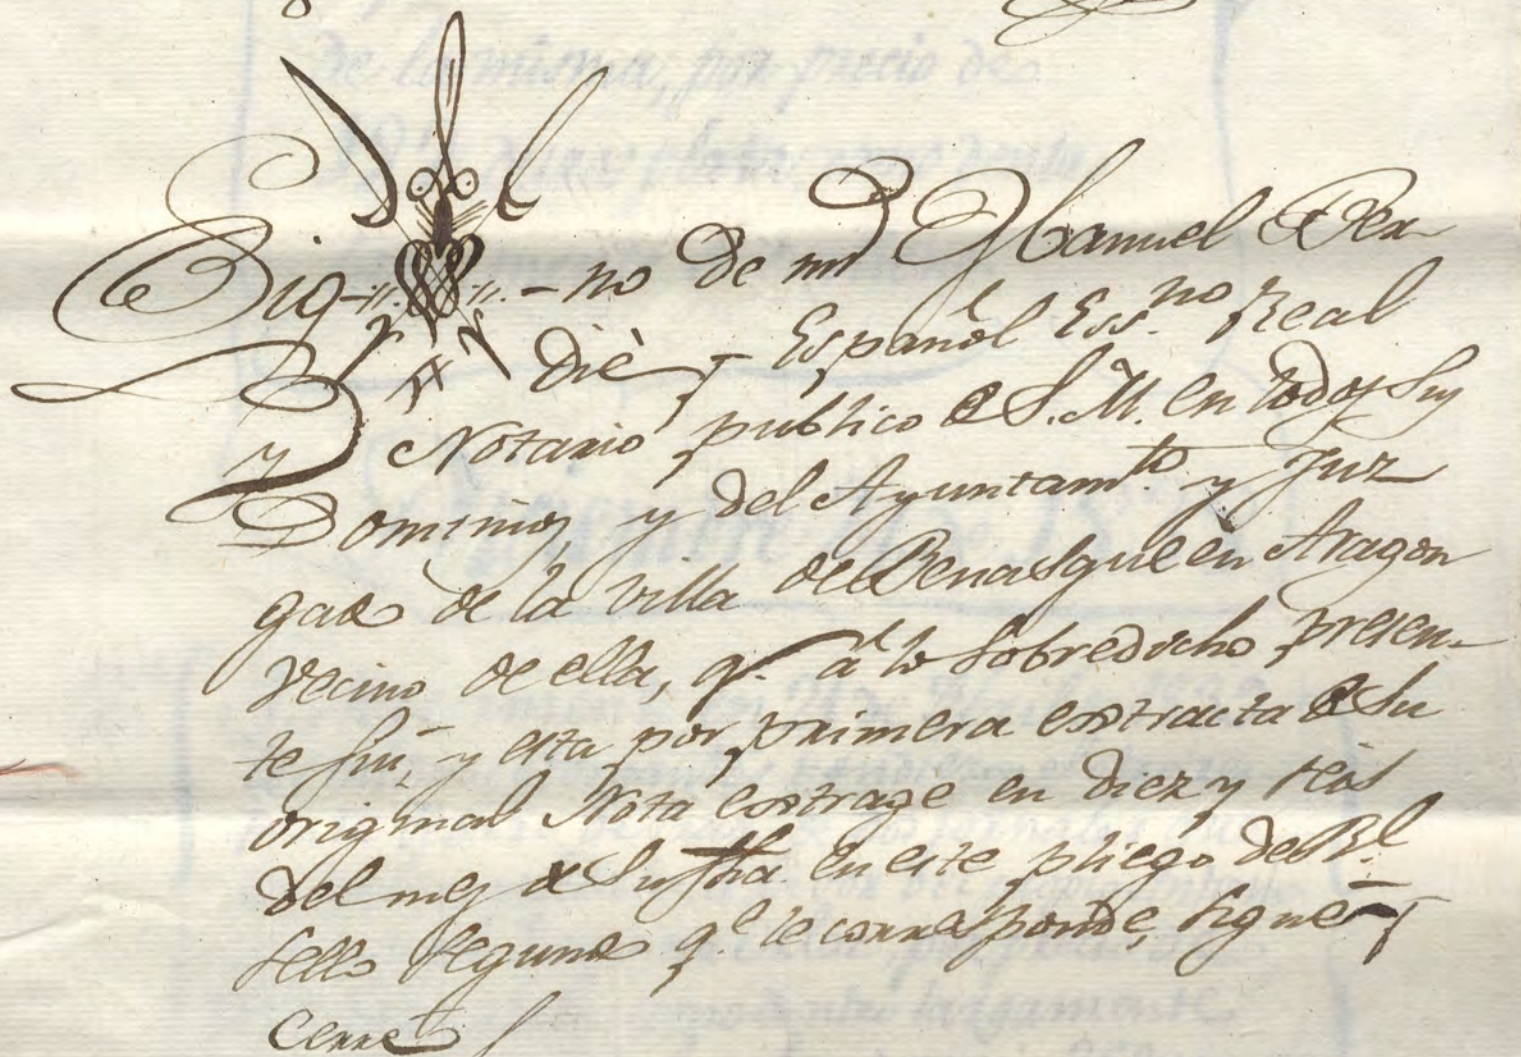 Sig-no de mi Manuel Fer
diè y Español Ess.no Real
y Notario publico de S. M. en todos sus
Dominios, y del Ayuntam.to y Juz
gado de la villa de Benasque en Aragon
vecino de ella, q.e a lo sobredicho presen-
te fui, y esta por primera extracta de su
original Nota extrage en diez y seis
del mes de su fha. en este pliego de Rl.
sello segundo q.e le corresponde, signe y
cerre